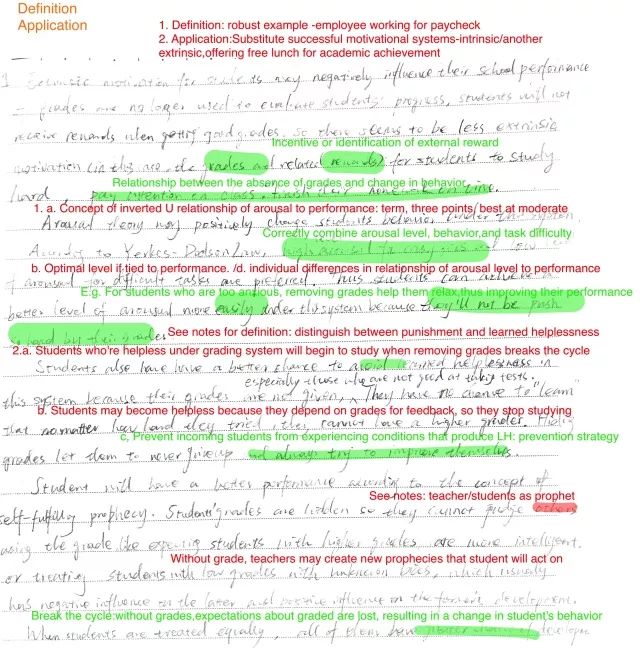 Definition
Application
1. Definition: robust example -employee working for paycheck
2. Application:Substitute successful motivational systems-intrinsic/another
extrinsic,offering free lunch for academic achievement
1. Extrinsic motivation for students may negatively influence their school performance
- grades are no longer used to evaluate students' progress, students will not
receive rewards when getting good grades. So there seems to be less extrinsic
Incentive or identification of external reward
motivation (in this case, the grades and related rewards) for students to study
Relationship between the absence of grades and change in behavior
hard, pay attention on class, finish their homework on time.
1. a. Concept of inverted U relationship of arousal to performance: term, three points/ best at moderate
Arousal theory may positively change students behavior under this system
Correctly combine arousal level, behavior,and task difficulty
According to Yerkes-Dodson Law, high arousal for easy ones and low level
b. Optimal level if tied to performance. /d. individual differences in relationship of arousal level to performance
of arousal for difficult tasks are preferred. Thus students can achieve a
E.g. For students who are too antious, removing grades help them relax.thus improving their performance
better level of arousal more easily under this system because they'll not be push
so hard by their grades.
See notes for definition: distinguish between punishment and learned helplessness
2.a. Students who're helpless under grading system will begin to study when removing grades breaks the cycle
Students also have a better chance to avoid learned helplessness in
especially those who are not good at taking tests.
this system because their grades are not given, They have no chance to "learn"
b. Students may become helpless because they depend on grades for feedback, so they stop studying
that no matter how hard they tried, they cannot have a higher grader. Hiding
c, Prevent incoming students from experiencing conditions that produce LH: prevention strategy
grades let them to never give up and always try to improve themselves.
Student will have a better performance according to the concept of
See notes: teacher/students as prophet
self-fulfilling prophecy. Students' grades are hidden so they cannot judge others
using the grade like expecting students with higher grades are more intelligent.
Without grade, teachers may create new prophecies that student will act on
or treating students with low grades with unfair bias, which usually
has negative influence on the later and positive influence on the former's development.
Break the cycle:without grades,expectations about graded are lost, resulting in a change in student's behavior
When students are treated equally, all of them have develope